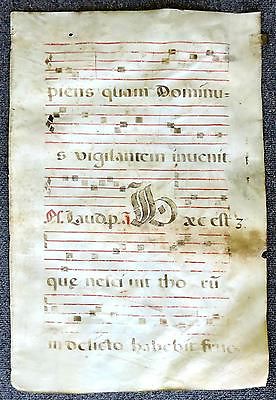 piens quam Dominu-
s vigilantem invenit.
Ps. Laud. p. a Hæc est 3.
que nescivit thorū
in delicto habebit fruc-